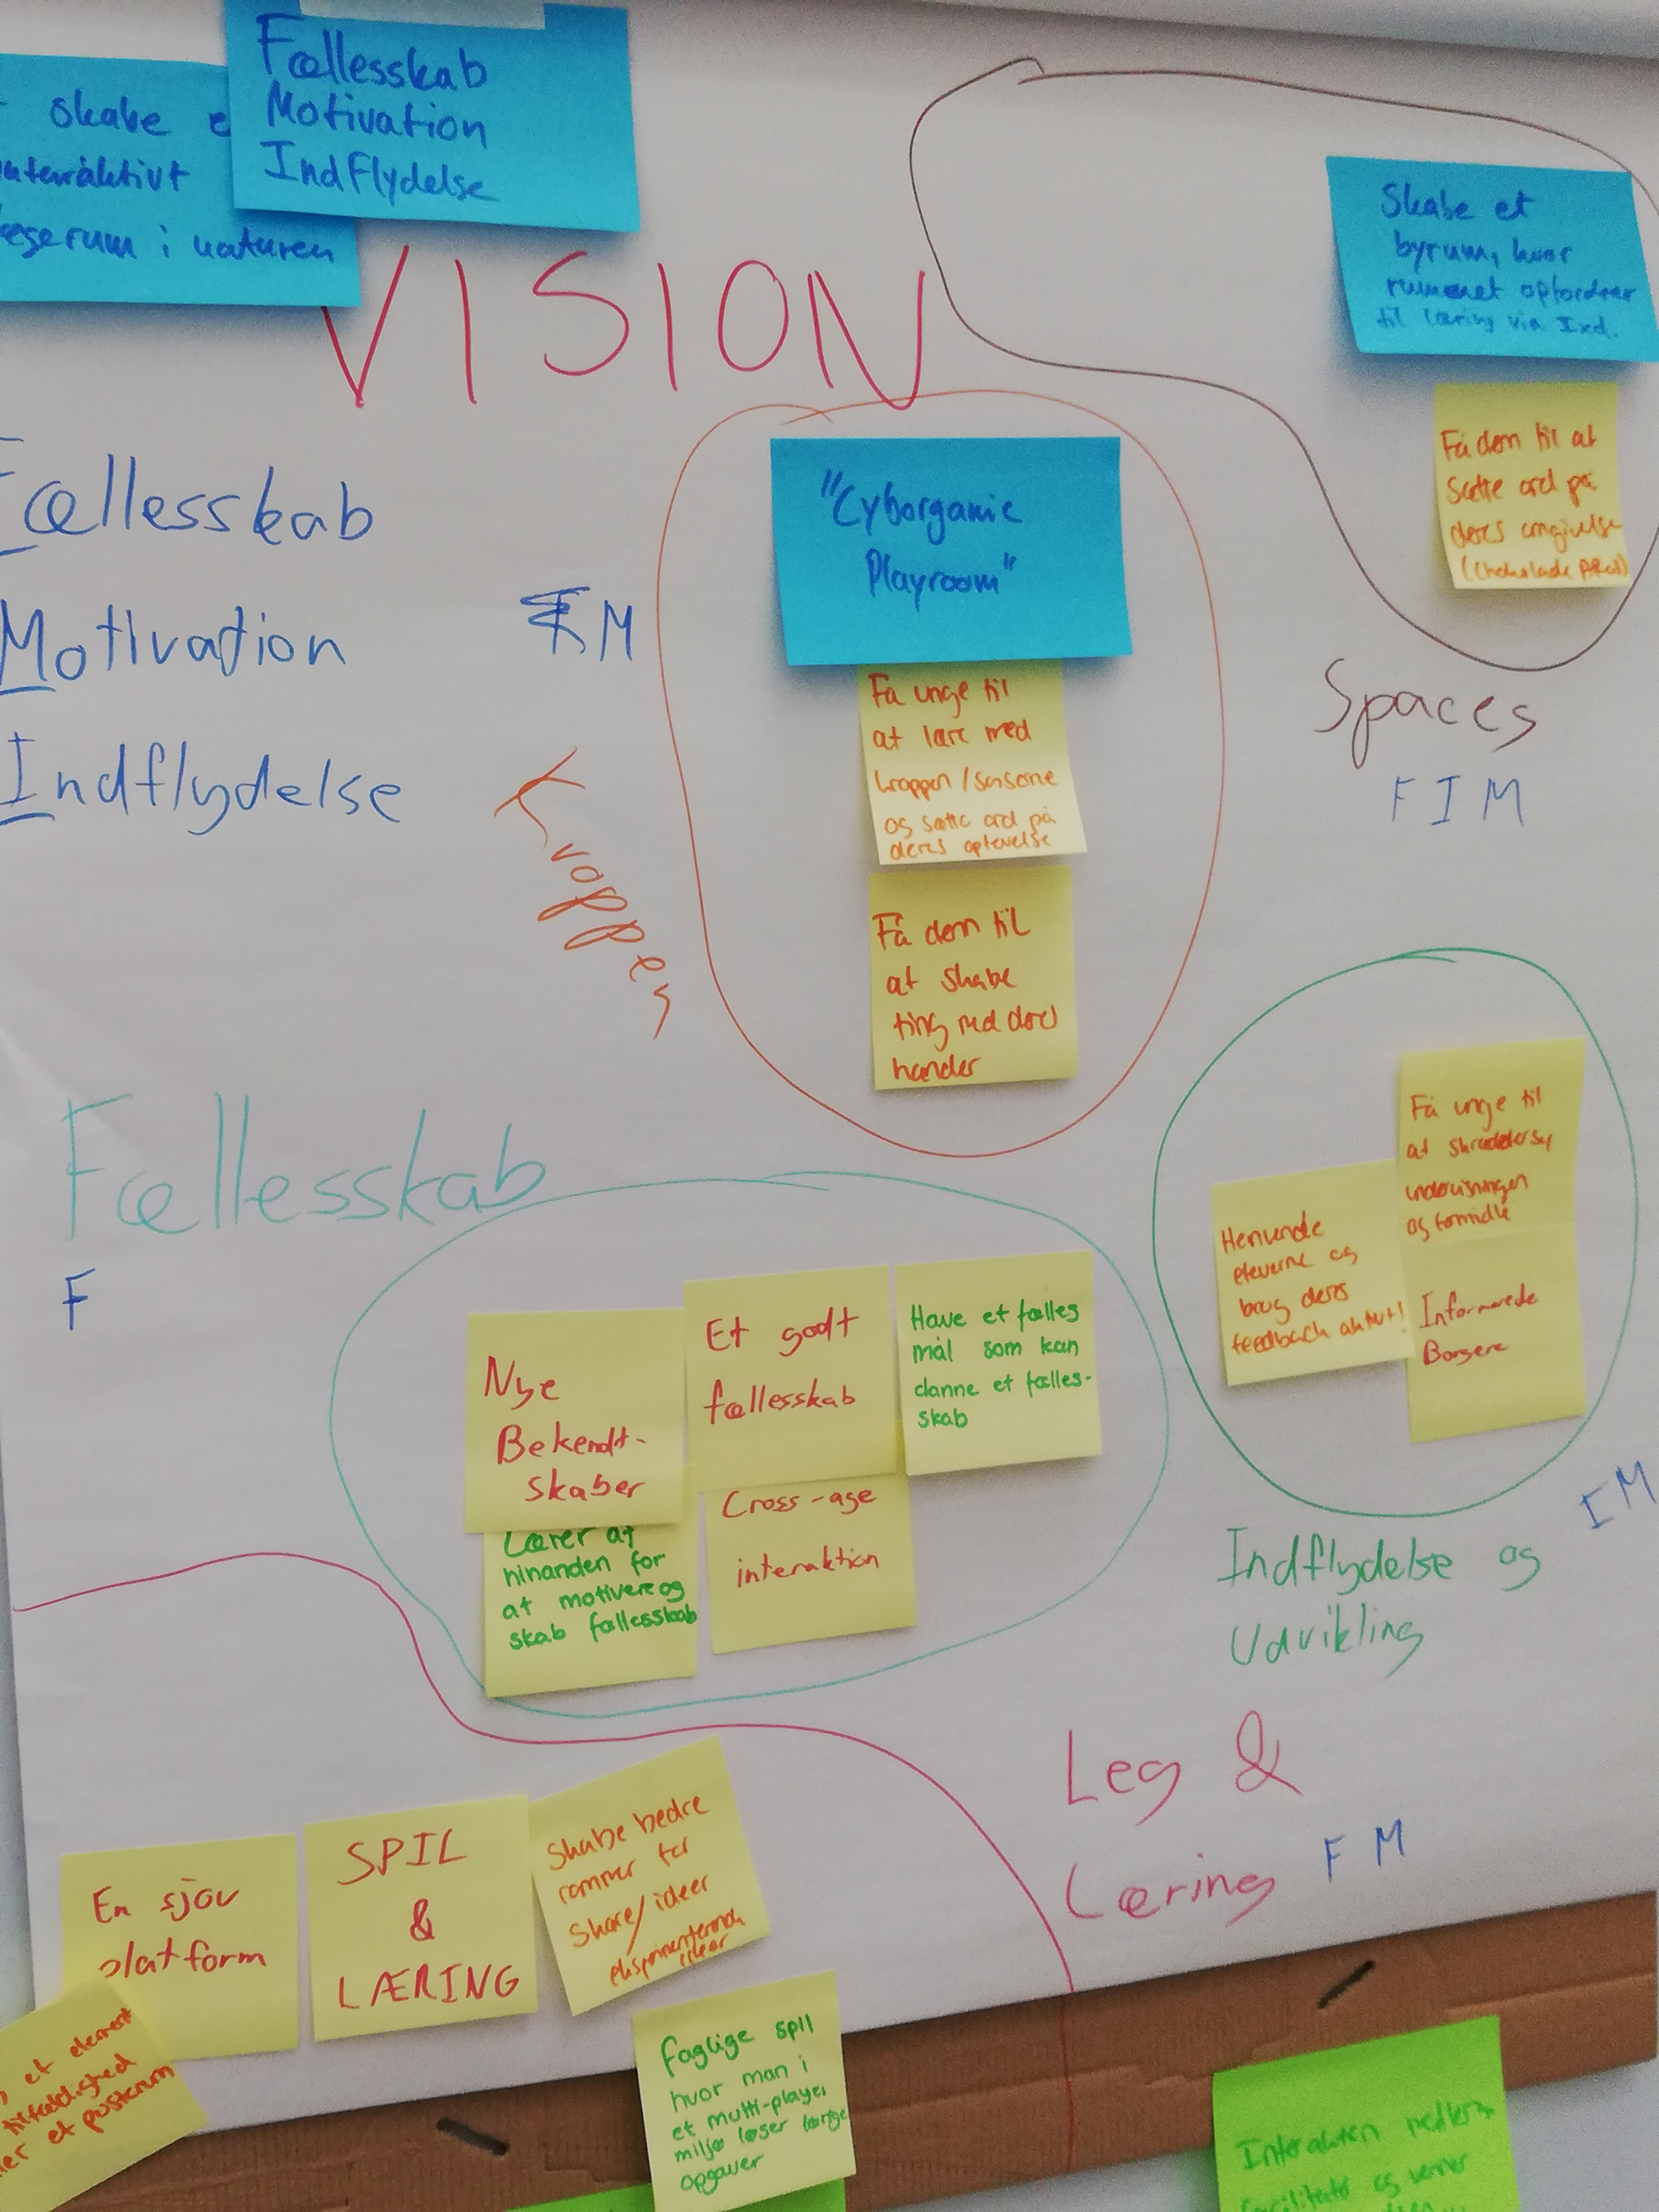 skabe e
nteraktivt
gerum i naturen
Fællesskab
Motivation
Indflydelse
VISION
Skabe et
byrum, hvor
rummet opfordrer
til læring via Ixd.
Få dem til at
sætte ord på
deres
Spaces
FIM
Fællesskab
Motivation
Indflydelse
FM
Kroppen
"Cyborganic
Playroom"
Få unge til
at lære med
kroppen/sanserne
og sætte ord på
deres oplevelse
Få dem til
at skabe
ting med deres
hænder
Fællesskab
F
Nye
Bekendt-
skaber
Et godt
fællesskab
Have et fælles
mål som kan
danne et fælles-
skab
Lærer af
hinanden for
at motivere og
skab fællesskab
Cross-age
interaktion
Få unge til
at skræddersy
undervisningen
og formidle
Henvende
eleverne og
brug deres
feedback aktivt!
Informerede
Borgere
IM
Indflydelse og
Udvikling
Leg &
Læring FM
En sjov
platform
SPIL
&
LÆRING
Skabe bedre
rammer for
skøre/ideer
eksperimenterende
ideer
et element
tilfældighed
er et posterum
faglige spil
hvor man i
et multi-player
miljø løser
opgaver
Interaktion
og